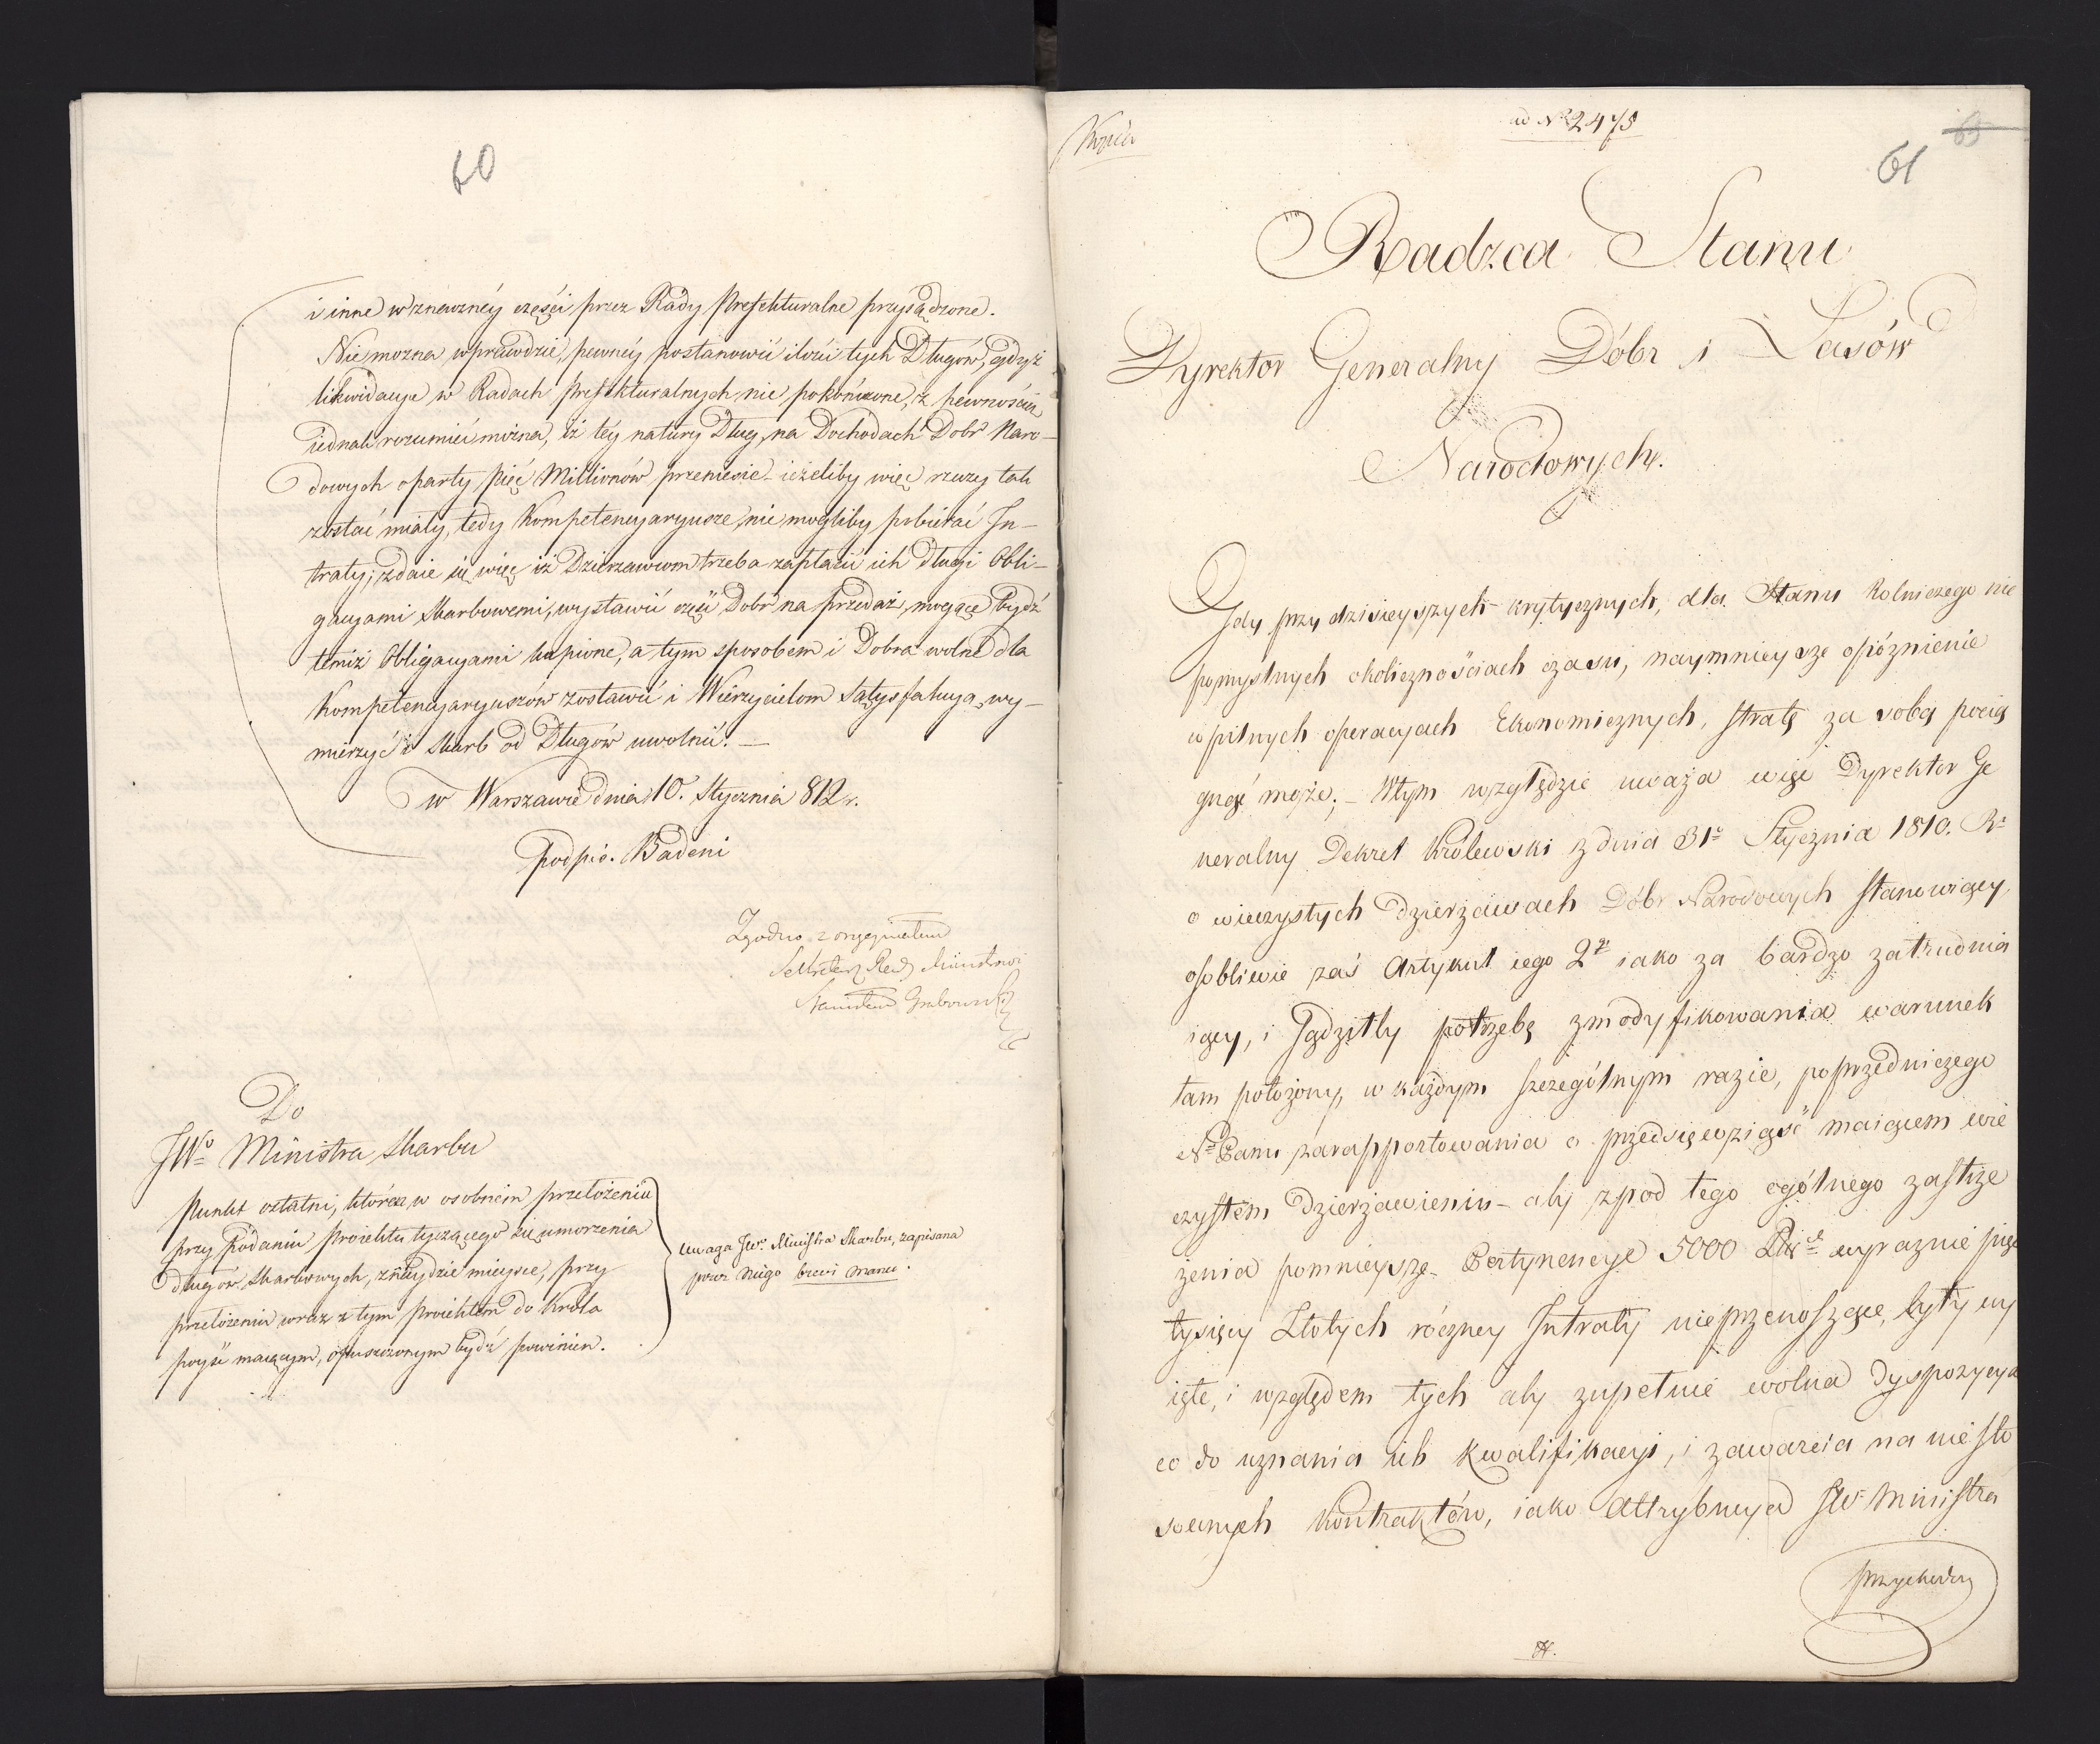 60
i inne w znaczney części przez Rady Prefekturalne przysądzone.
Nie mozna wprawdzie, pewney postanowić ilości tych Długów, gdyż
likwidacye w Radach Prefekturalnych nie pokończone, z pewnością
iednak rozumieć można, iż tey natury Dług na Dochodach Dobr Naro-
dowych oparty pięć Millionów przeniesie - ieżeliby więc rzeczy tak
zostać miały, tedy Kompetencyaryusze nie mogliby pobierać In-
traty; zdaie się więc iż Dzierzawcom trzeba zapłacić ich długi Obli-
gacyami Skarbowemi, wystawić część Dobr na przedaż, mogące bydź
temiż Obligacyami kupione, a tym sposobem i Dobra wolne dla
Kompetencyaryuszów zostawić i Wierzycielom Satysfakcyą wy-
mierzyć i Skarb od Długów uwolnić. —
w Warszawie dnia 10. Stycznia 812 r.
podpis. Badeni
Zgodno z oryginałem
Sekretarz Rady Ministrów
Stanisław Grabowski
Do
JWo Ministra Skarbu
Punkt ostatni, któren w osobnem przełożeniu
przy Podaniu proiektu tyczącego się umorzenia
długów Skarbowych, znaydzie mieysce, przy
przełożeniu wraz z tym proiektem do Króla
poyść maiącym, opuszczonym bydź powinien.
Uwaga JWo Ministra Skarbu, zapisana
przez niego brevi manu.
Kopia
ad No 2475
65
61
Radzca Stanu
Dyrektor Generalny Dóbr i Lasów
Narodowych.
Gdy przy dzisieyszych krytycznych, dla Stanu Rolniczego nie
pomyślnych okolicznościach czasu, naymnieysze opóznienie
w pilnych operacyach Ekonomicznych, stratę za sobą pocią
gnąć może; - Wtym względzie uważa więc Dyrektor Ge
neralny Dekret Królewski z dnia 31o Stycznia 1810. Ro
o wieczystych Dzierżawach Dóbr Narodowych stanowiący,
osobliwie zaś Artykuł iego 2gi iako za bardzo zatrudnia
iący, i Jądziłby potrzebę zmodyfikowania warunek
tam położony, w każdym szczególnym razie, poprzedniczego
No Panu zarapportowania o przedsięwziąść maiącem wie
czystem Dzierżawieniu - aby zpod tego ogólnego zastrze
żenia pomnieysze Pertynencye 5000 wyraznie pięc
tysięcy Złotych róczney Intraty nieprzenoszące, były wy
ięte, i względem tych aby zupełnie wolna dyspozycya
co do uznania ich kwalifikacyi, i zawarcia na nie sto
sownych kontraktów, iako Attrybucya JW. Ministra
Przychodzy